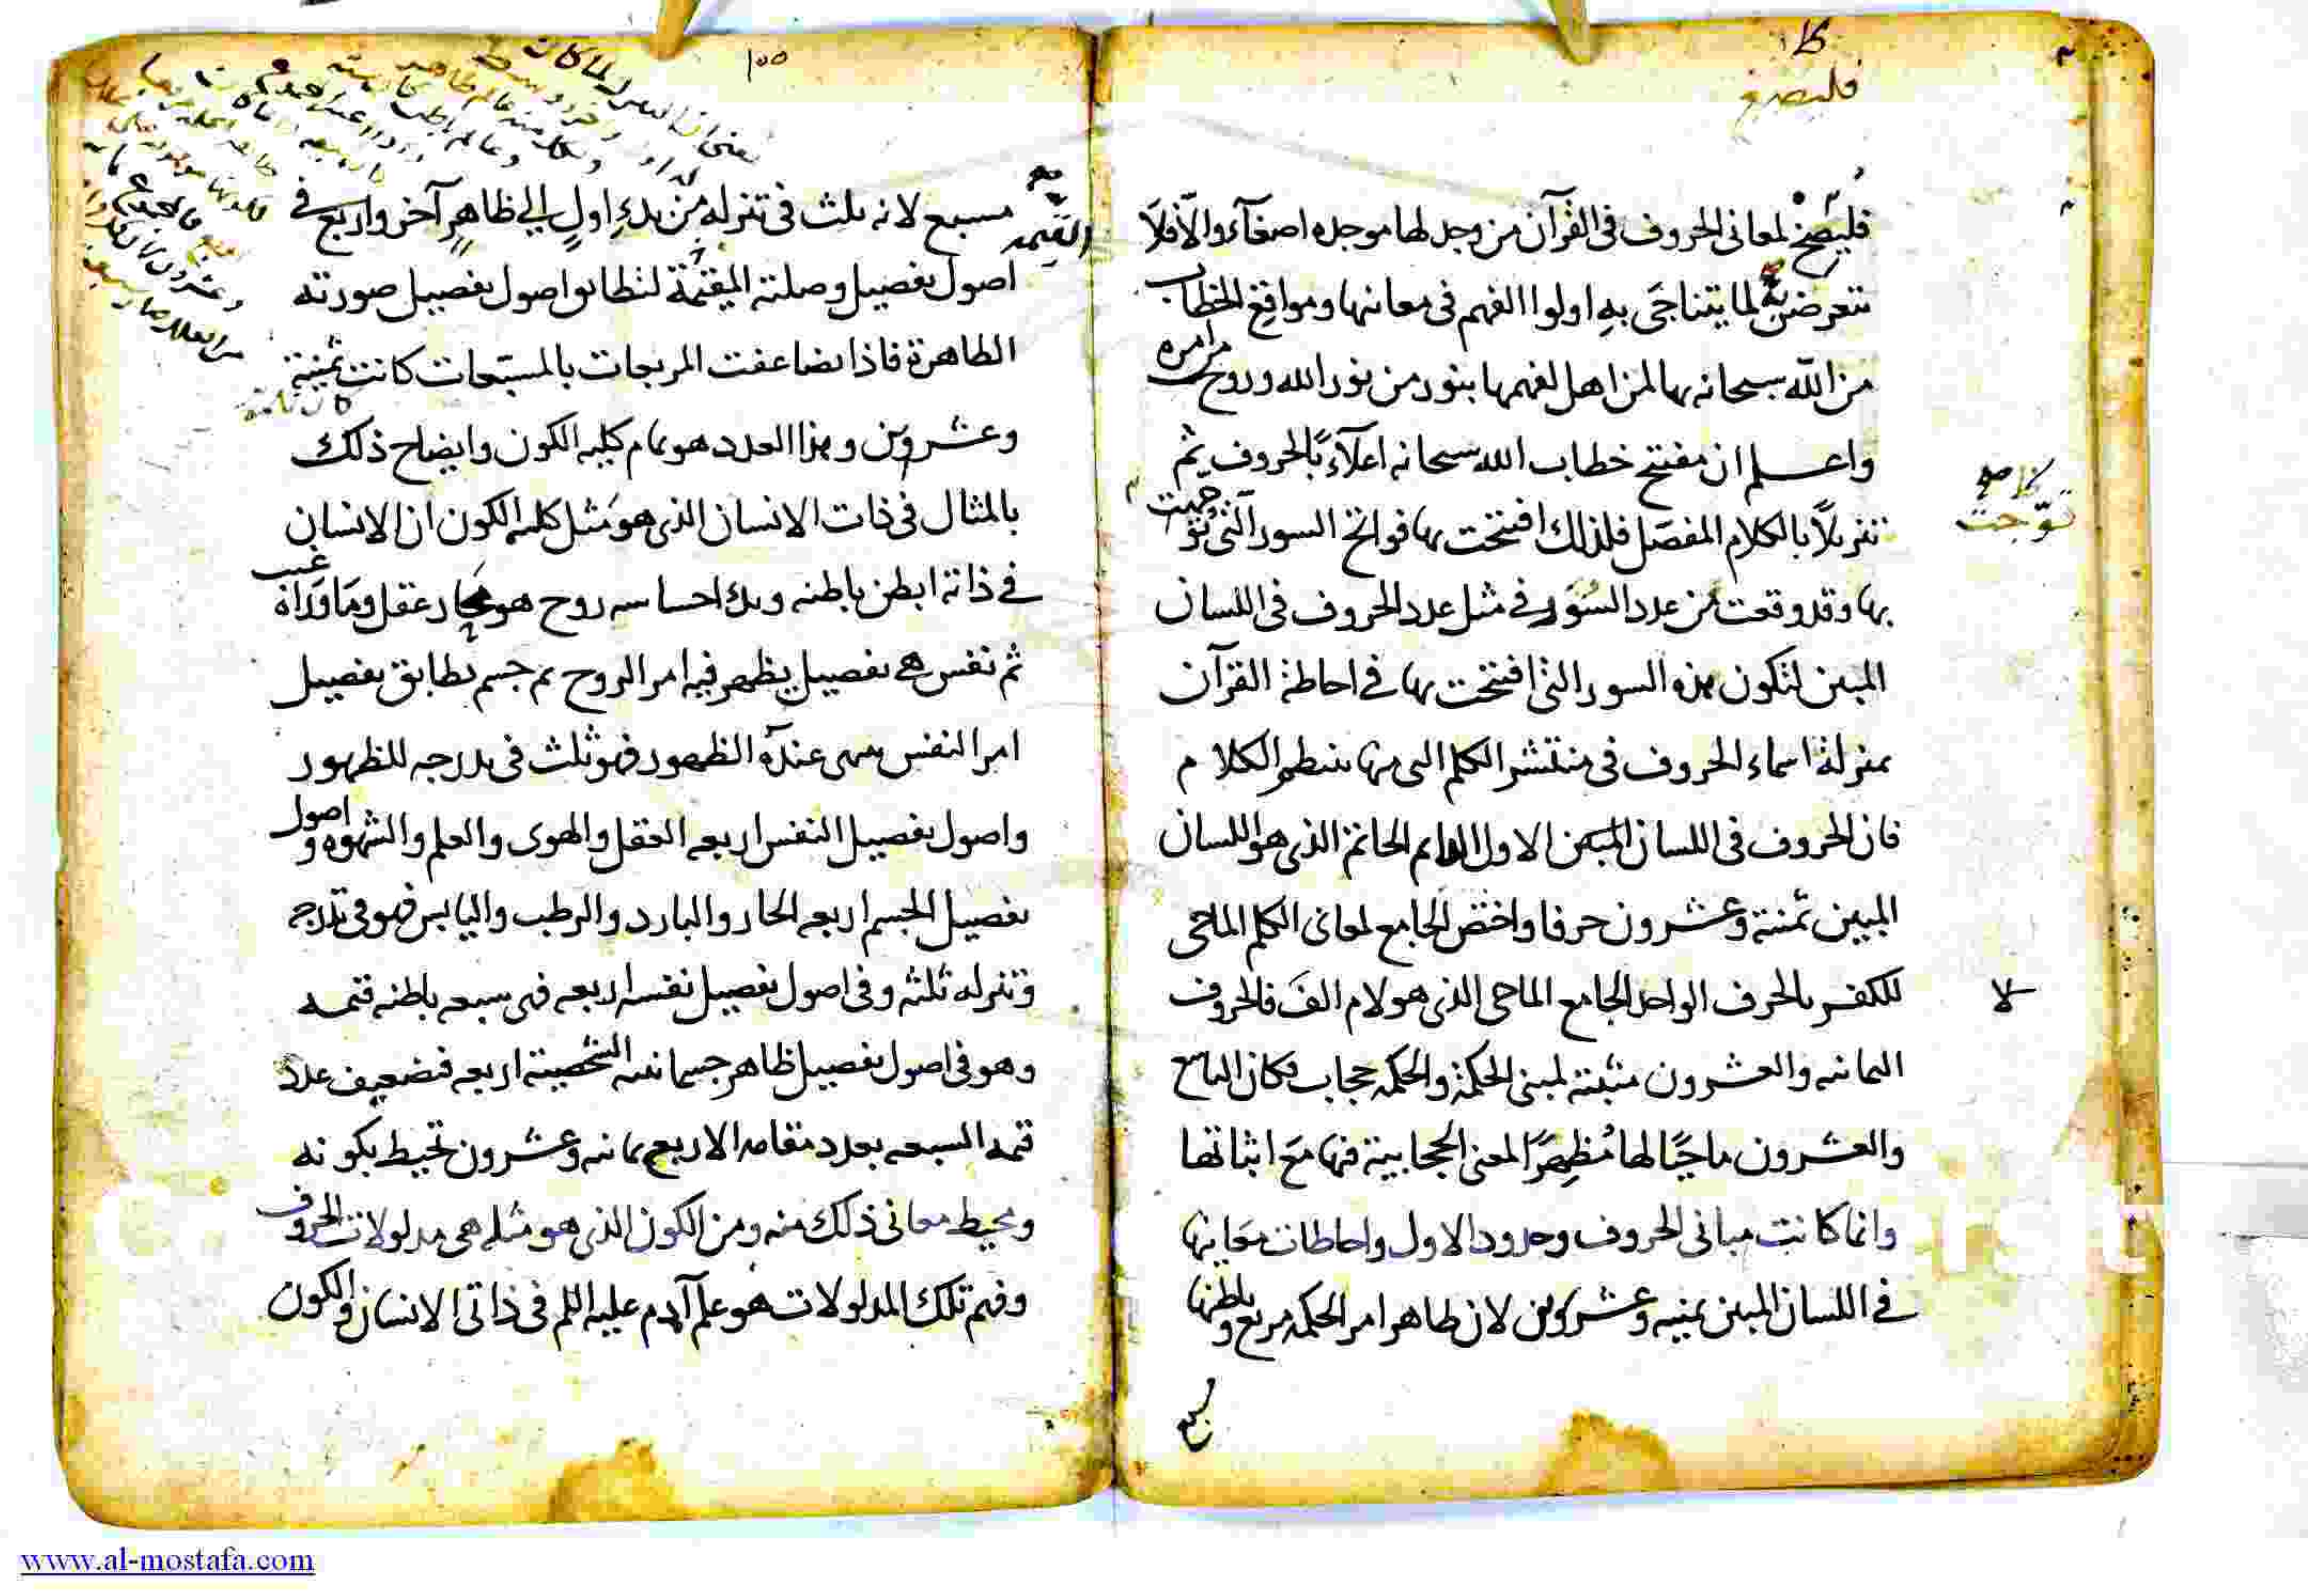 فليصخ لمعانى الحروف فى القرآن من وجد لها موجده اصغآء والّا فلا
يتعرضن لما يتناجى به اولوا الفهم فى معانيها ومواقع الخطاب
من الله سبحانه بها لمن اهل لفهمها بنور من نور الله وروح من امره
واعلم ان مفتتح خطاب الله سبحانه اعلآءً بالحروف ثم
تنزيلاً بالكلام المفصل فلذلك افتتحت بها فواتح السور التى توجت
بها وقد وقعت من عدد السُّوَر فى مثل عدد الحروف فى اللسان
المبين لتكون هذه السور التى افتتحت بها فى احاطة القرآن
بمنزلة اسماء الحروف فى منتشر الكلم التى منها ينتظم الكلام
فان الحروف فى اللسان المبين الاول الدايم الخاتم الذى هو اللسان
المبين ثمنية وعشرون حرفا واختص الجامع لمعانى الكلم الماحى
للكفر بالحرف الواحد الجامع الماحى الذى هو لام الف فالحروف
الثمانيه والعشرون مثبتة لمبنى الحكمة والحكمه حجاب فكان التاسع
والعشرون ماحيًا لها مُظهِرًا لمعنى الحجابية فيها مع اثباتها
وانما كانت مبانى الحروف وحدود الاول واحاطات معانيها
فى اللسان المبين ثمنيه وعشرون لان ظاهر امر الحكمه مربع وباطنها
مسبع
كلا
فليصغ
توّجت
لا
١٠٥
مسبع لانه ثلث فى تنزله من بدءِ اولٍ الى ظاهرٍ آخر واربع فى
اصول تفصيل وصلته المقيمة لتطابق اصول تفصيل صورته
الظاهرة فاذا تضاعفت المربعات بالمسبّعات كانت ثمنية
وعشروين وهذا العدد هو تمام كليه الكون وايضاح ذلك
بالمثال فى ذات الانسان الذى هو مثل كليه الكون ان الانسان
فى ذاته ابطن باطنه وبدء احساسه روح هو عقل وما وراه غيب
ثم نفس هى تفصيل يظهر فيه امر الروح ثم جسم يطابق تفصيل
امر النفس ينتهى عنده الظهور فهو ثلث فى تدرجه للظهور
واصول تفصيل النفس اربعه العقل والهوى والعلم والشهوه واصول
تفصيل الجسم اربعه الحار والبارد والرطب واليابس فهو فى تدرجه
وتنزله ثلثة وفى اصول تفصيل نفسه اربعه فهى سبعه باطنه قيمه
وهو فى اصول تفصيل ظاهر جسمانيته الشخصية اربعه فتضعيف عدد
قيمه السبعه بعدد مقامه الاربع ثمانيه وعشرون تحيط بكونه
ومحيط معانى ذلك منه ومن الكون الذى هو مثله هى مدلولات الحروف
وفهم تلك المدلولات هو علم آدم عليه السلم فى ذاتى الانسان والكون